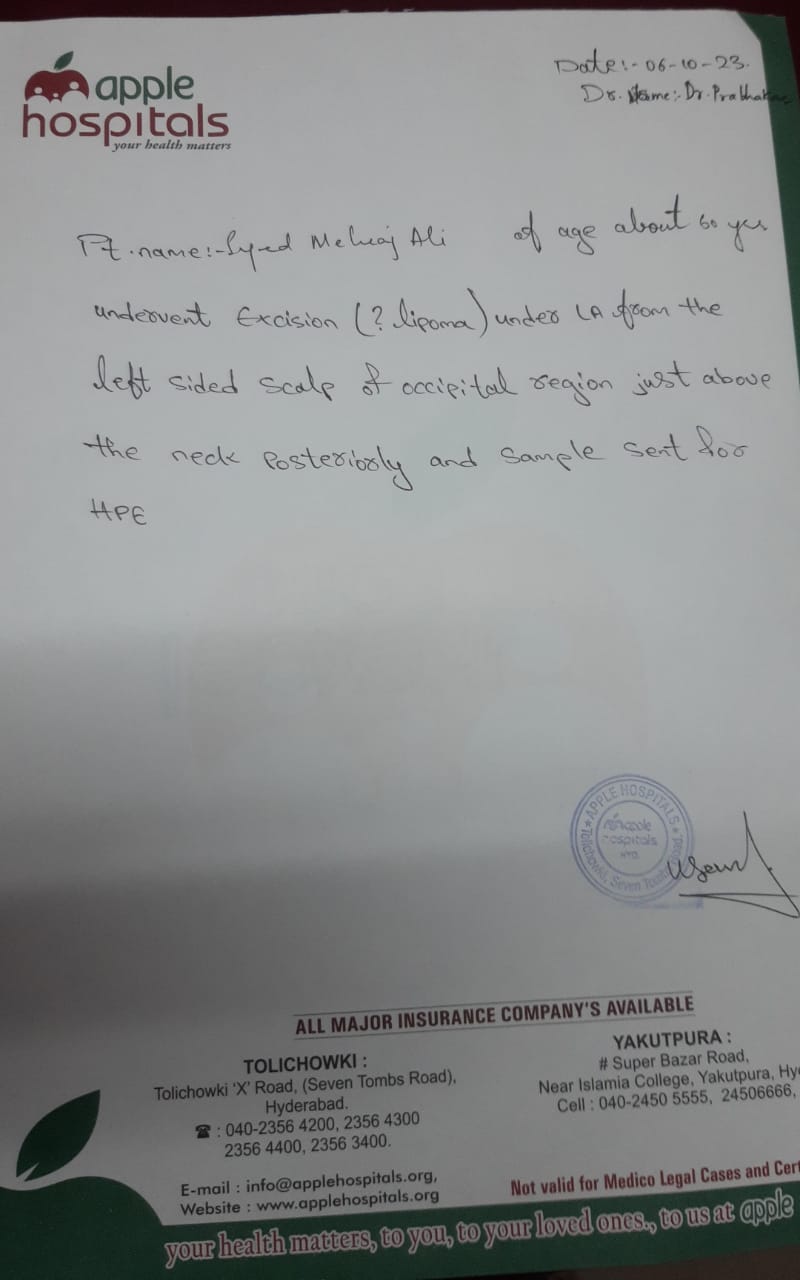 apple
hospitals
your health matters
Date:- 06-10-23.
Dr. Name:- Dr. Prabhakar
Pt. name:- Syed Mehraj Ali of age about 60 yrs
undervent Excision (? lipoma) under LA from the
left sided scalp of occipital region just above
the neck posteriorly and sample sent for
HPE
APPLE HOSPITALS
Tolichowki, Seven Tombs Road
apple
hospitals
HYD.
ALL MAJOR INSURANCE COMPANY'S AVAILABLE
TOLICHOWKI :
Tolichowki 'X' Road, (Seven Tombs Road),
Hyderabad.
☎ : 040-2356 4200, 2356 4300
2356 4400, 2356 3400.
E-mail : info@applehospitals.org,
Website : www.applehospitals.org
YAKUTPURA :
# Super Bazar Road,
Near Islamia College, Yakutpura, Hy
Cell : 040-2450 5555, 24506666,
Not valid for Medico Legal Cases and Cert
your health matters, to you, to your loved ones., to us at apple